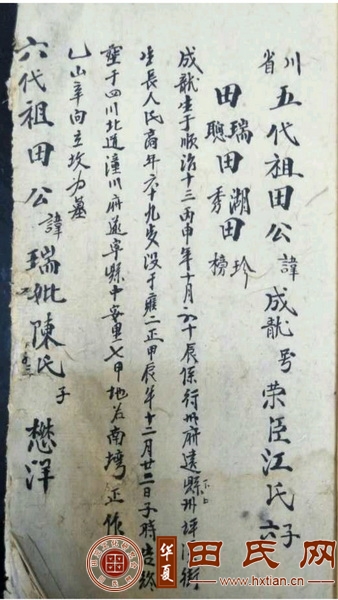 川省 五代祖田公諱成龍号荣臣江氏六子
田瑞田湖田珍
聪秀榜
成龍生于順治十三丙申年十月 十辰係行州府遠縣 坪 街
生長人民高年六十九岁没于雍二正甲辰年十二月廿二日子時告終
塟于四川北道潼川府遂寧縣中安里七甲地名南塆正作
乙山辛向立坟为墓
六代祖田公諱瑞妣陳氏子懋洋
华夏
田氏网
www.hxtian.cn